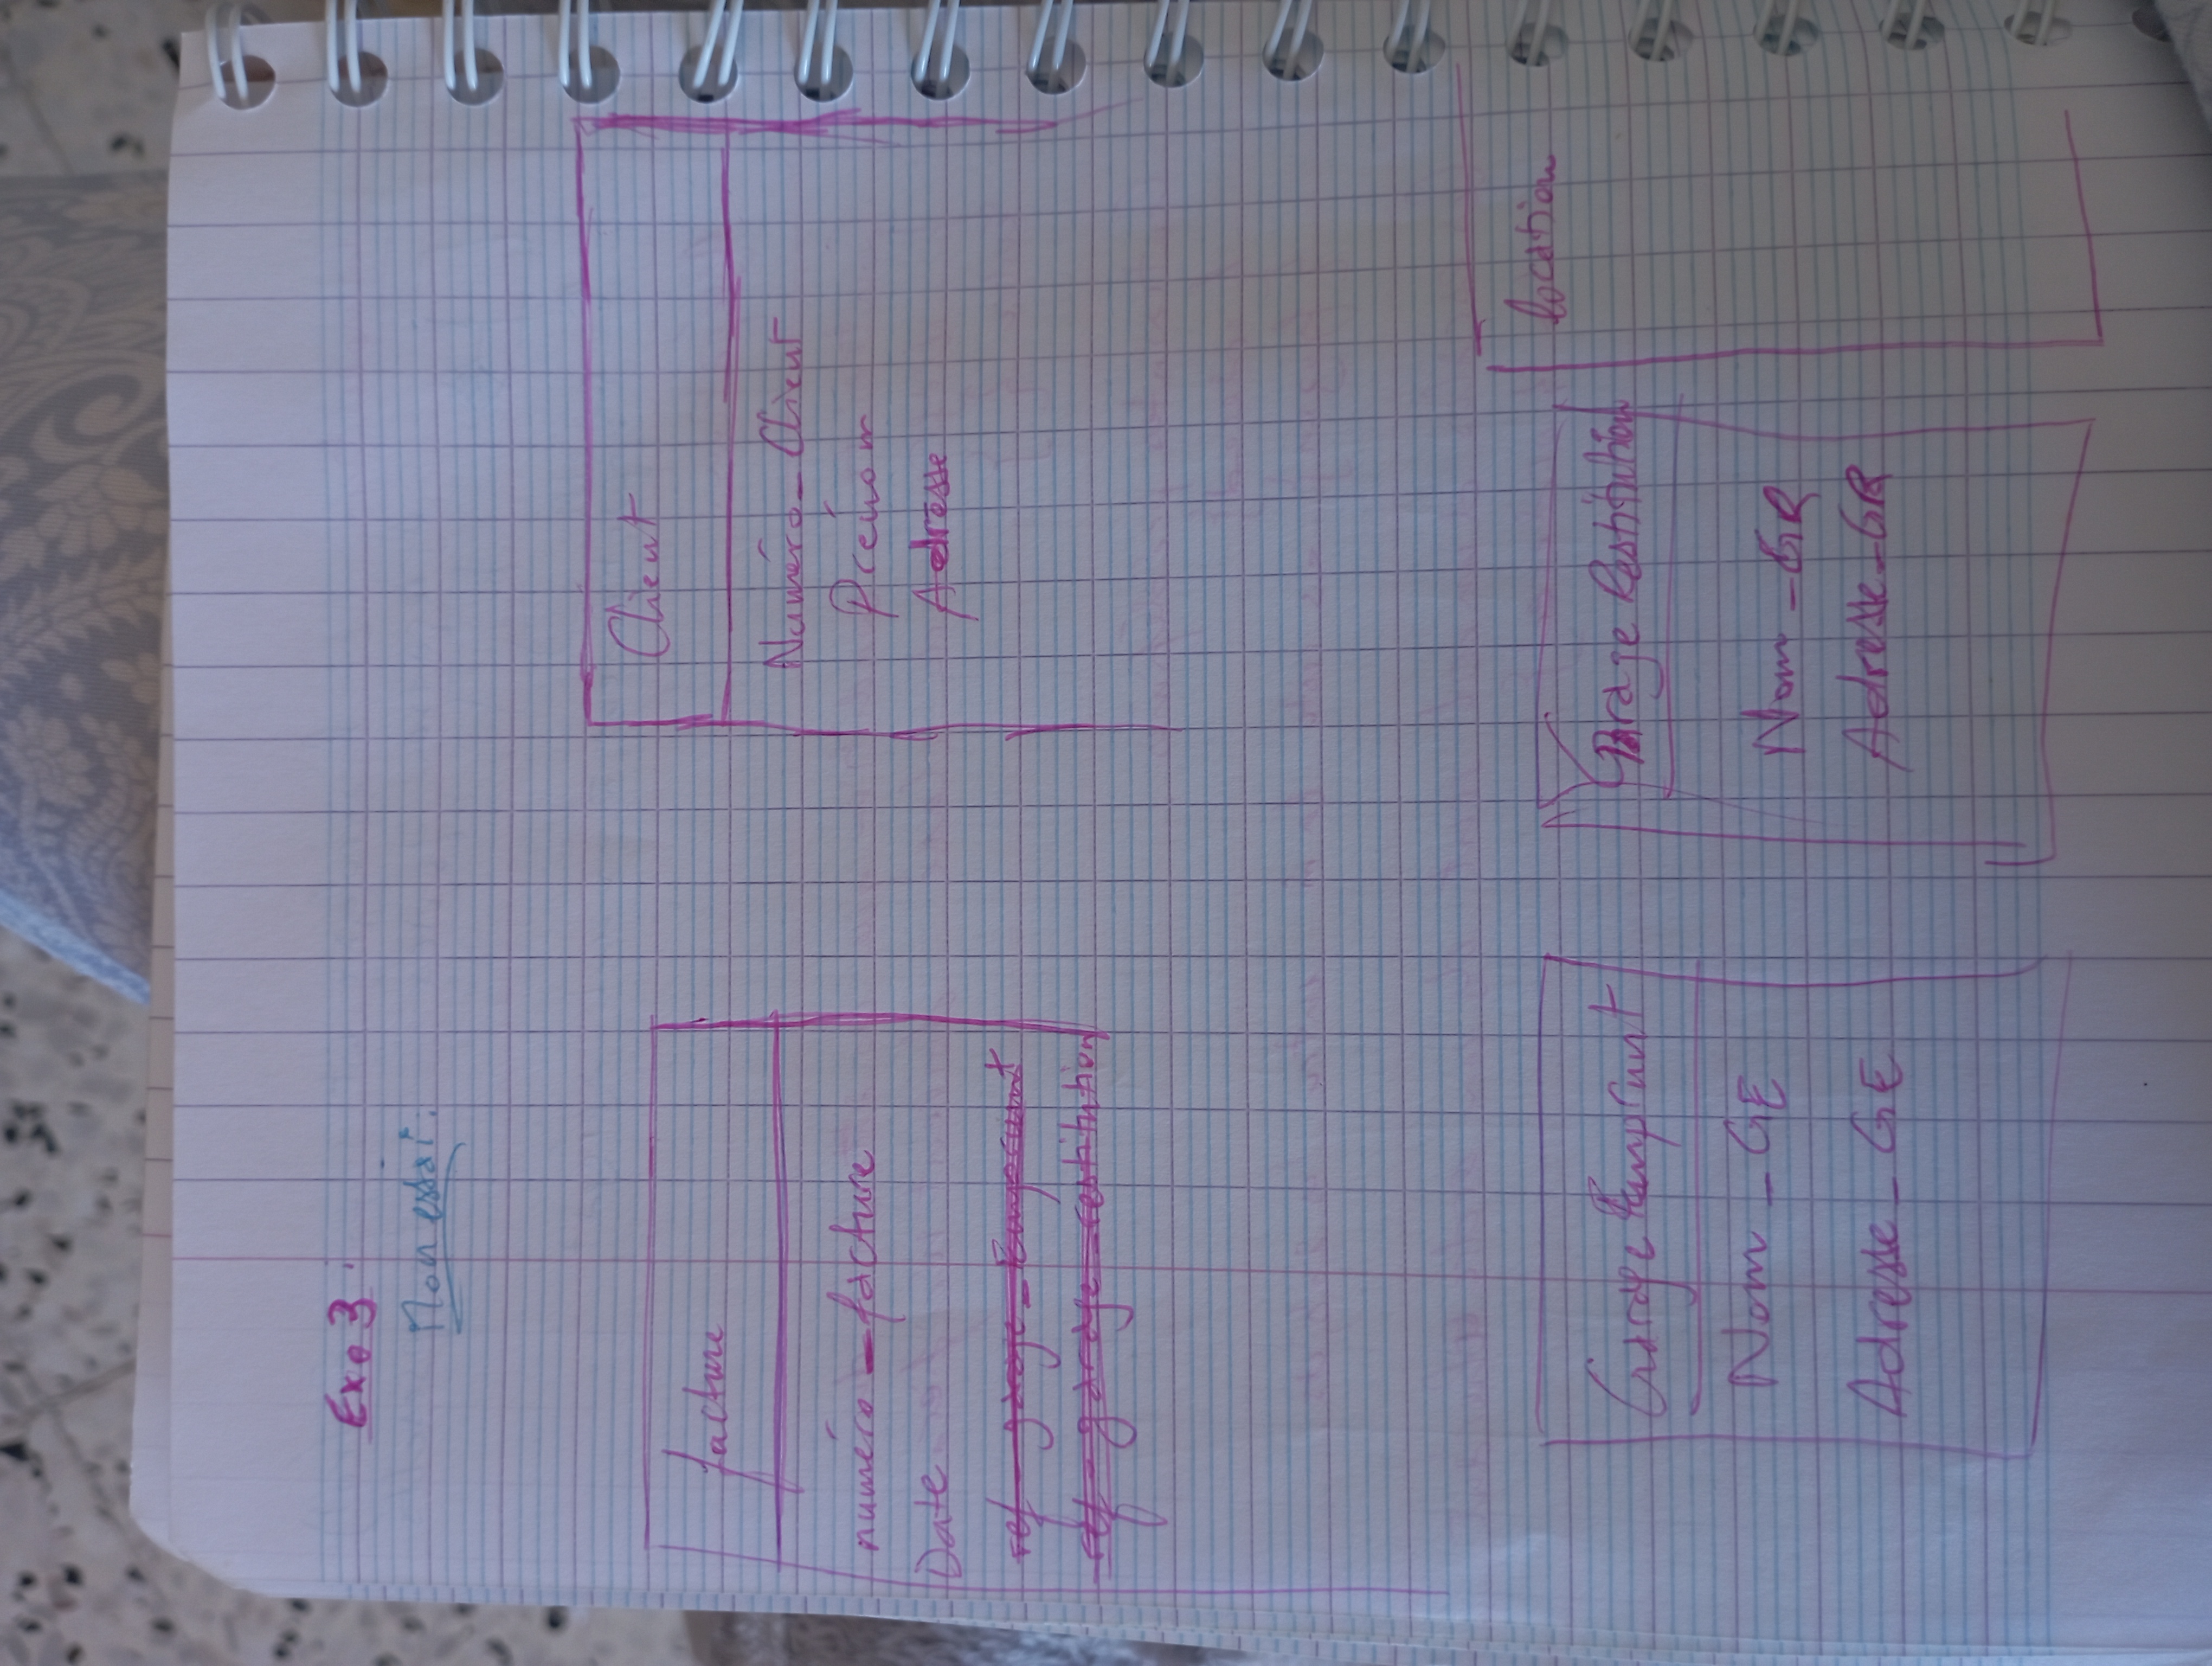 Exo 3 :
Mon essai :
facture
numéro_facture
Date
ref_garage_Emprunt
ref_garage_restitution
Client
Numéro_Client
Prénom
Adresse
Garage Emprunt
Nom_GE
Adresse_GE
Garage Restitution
Nom_GR
Adresse_GR
location